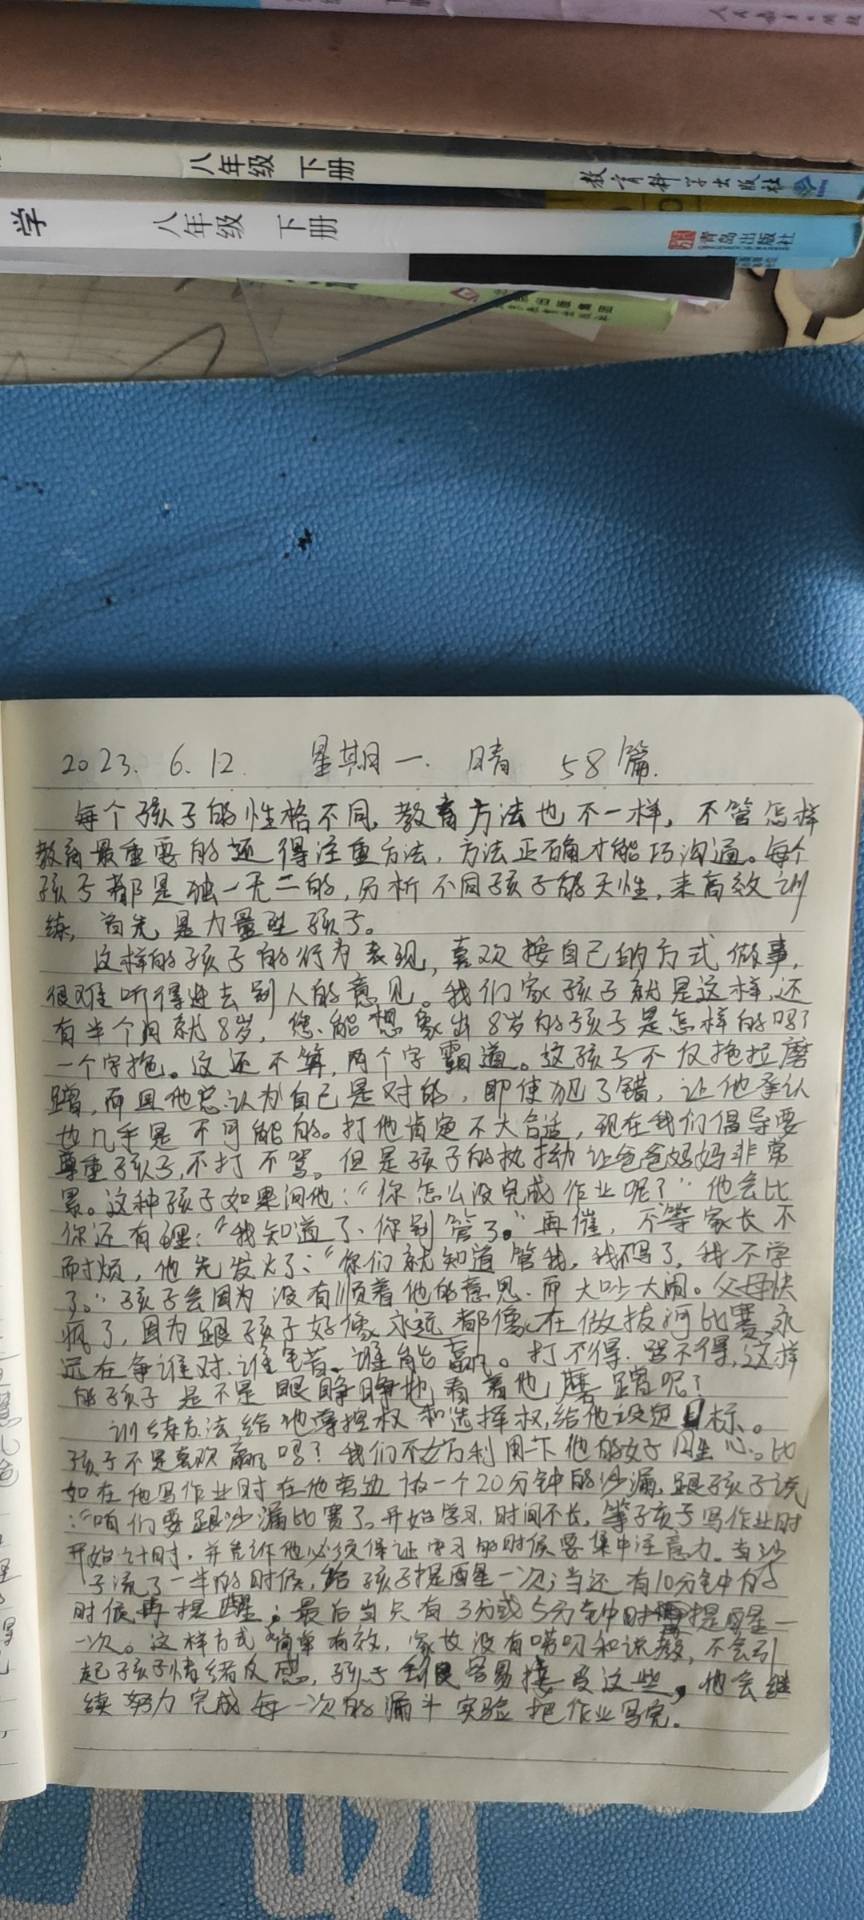 人民教育出版社
八年级 下册
教育科学出版社
学 八年级 下册
青岛出版社
2023. 6. 12. 星期一. 晴 58篇.
每个孩子的性格不同, 教育方法也不一样, 不管怎样
教育最重要的还得注重方法, 方法正确才能巧沟通。每个
孩子都是独一无二的, 分析不同孩子的天性, 来高效训
练, 首先是力量型孩子。
这样的孩子的行为表现, 喜欢按自己的方式做事,
很难听得进去别人的意见。我们家孩子就是这样, 还
有半个月就8岁, 您能想象出8岁的孩子是怎样的吗?
一个字拖。这还不算, 两个字霸道。这孩子不仅拖拉磨
蹭, 而且他总认为自己是对的, 即使犯了错, 让他承认
也几乎是不可能的。打他肯定不大合适, 现在我们倡导要
尊重孩子, 不打不骂。但是孩子的执拗让爸爸妈妈非常
累。这种孩子如果问他:“你怎么没完成作业呢?”他会比
你还有理:“我知道了、你别管了。”再催, 不等家长不
耐烦, 他先发火了:“你们就知道管我, 我不写了, 我不学
了。”孩子会因为没有顺着他的意思. 而大吵大闹。父母快
疯了, 因为跟孩子好像永远都像在做拔河比赛, 永
远在争谁对、谁笔者、谁能赢。打不得. 骂不得, 这样
的孩子是不是眼睁睁地看着他磨蹭呢?
训练方法给他掌控权和选择权, 给他设定目标。
孩子不是喜欢赢吗? 我们不妨利用一下他的好胜心。比
如在他写作业时在他旁边放一个20分钟的沙漏, 跟孩子说
:“咱们要跟沙漏比赛了。开始学习, 时间不长, 等孩子写作业时
开始计时, 并告诉他必须保证学习的时候要集中注意力。当沙
子流了一半的时候, 给孩子提醒一次; 当还有10分钟的
时候再提醒; 最后当只有3分或5分钟时再提醒一
一次。这样方式简单有效, 家长没有唠叨和说教, 不会引
起孩子情绪反感, 孩子容易接受这些, 他会继
续努力完成每一次的漏斗实验把作业写完.